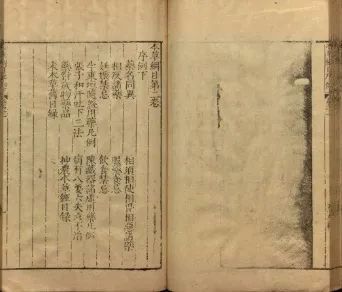 本草綱目第二卷
序例下
藥名同異　相須相使相畏相惡諸藥
相反諸藥　服藥食忌
妊娠禁忌　飲食禁忌
李東垣隨證用藥凡例　陳藏器諸虛用藥凡例
張子和汗吐下三法　病有八要六失六不治
藥對歲物藥品　神農本草經目錄
宋本草舊目錄